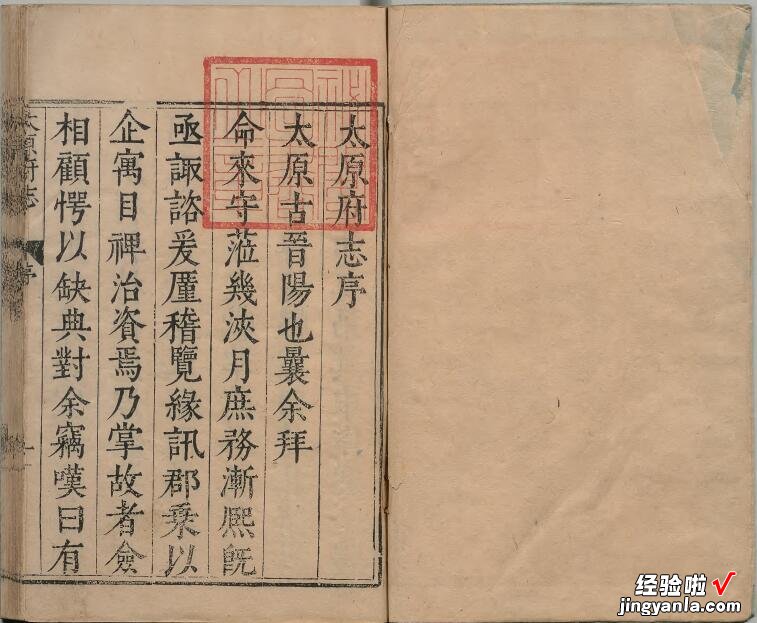 太原府志序
太原古晉陽也曩余拜
命來守蒞幾浹月庶務漸熙旣
亟諏諮爰厪稽覽緣訊郡乗以
企寓目禆治資焉乃掌故者僉
相顧愕以缺典對余竊嘆曰有
太原府志 序 一
经验啦√
jingyanla.com